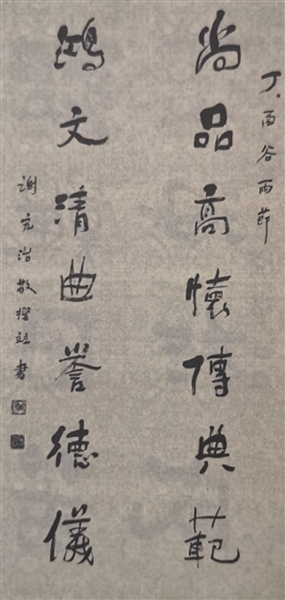 丁酉谷雨節
尚品高懷傳典範
鴻文清曲誉德儀
謝克治敬撰並書